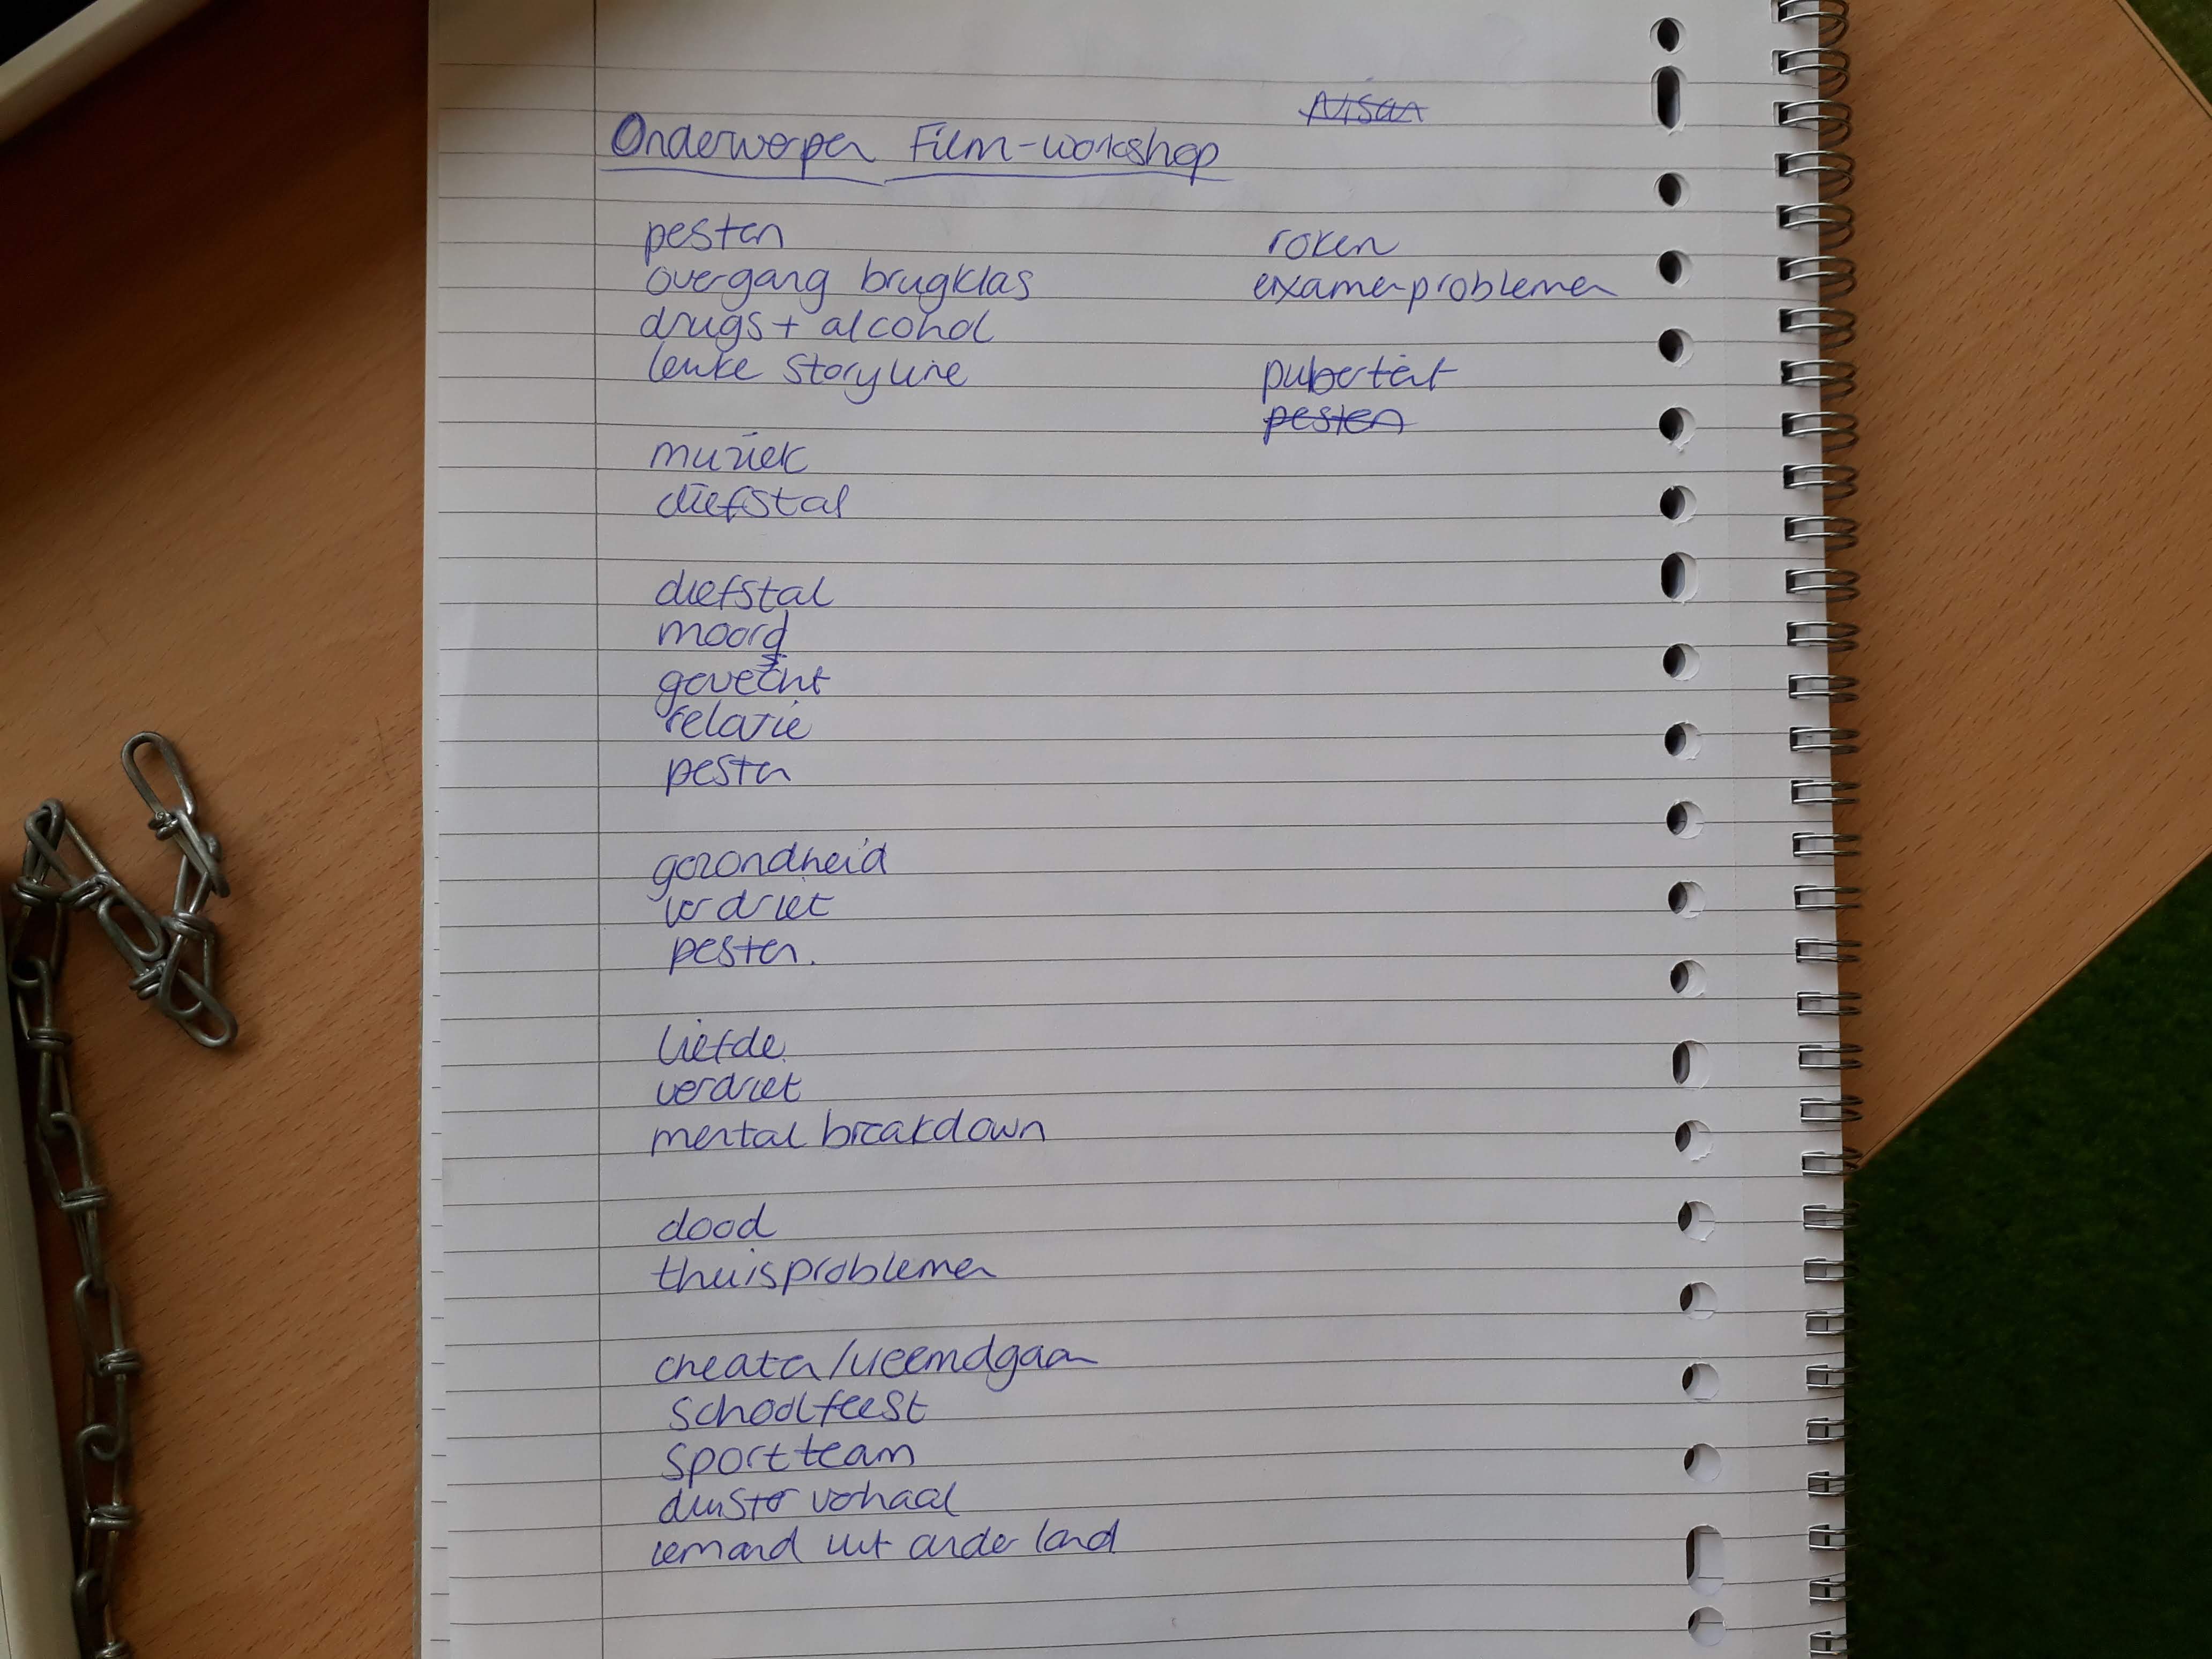 Onderwerpen Film-workshop
pesten
overgang brugklas
drugs + alcohol
leuke storyline
muziek
diefstal
diefstal
moord
gevecht
relatie
pesten
gezondheid
verdriet
pesten.
liefde
verdriet
mental breakdown
dood
thuisproblemen
cheaten/vreemdgaan
schoolfeest
sportteam
duister verhaal
iemand uit ander land
roken
examenproblemen
puberteit
pesten